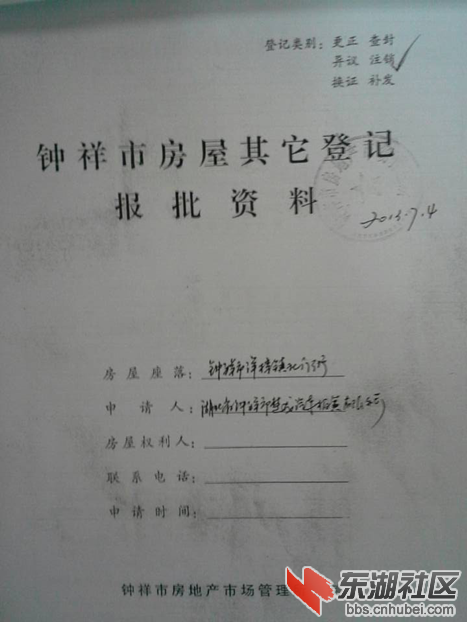 登记类别：更正 查封
异议 注销
换证 补发
钟祥市房屋其它登记
报批资料
2013.7.4
房屋座落：钟祥市洋梓镇
申请人：湖北省钟祥市楚龙汽车有限公司
房屋权利人：
联系电话：
申请时间：
钟祥市房地产市场管理
东湖社区
bbs.cnhubei.com